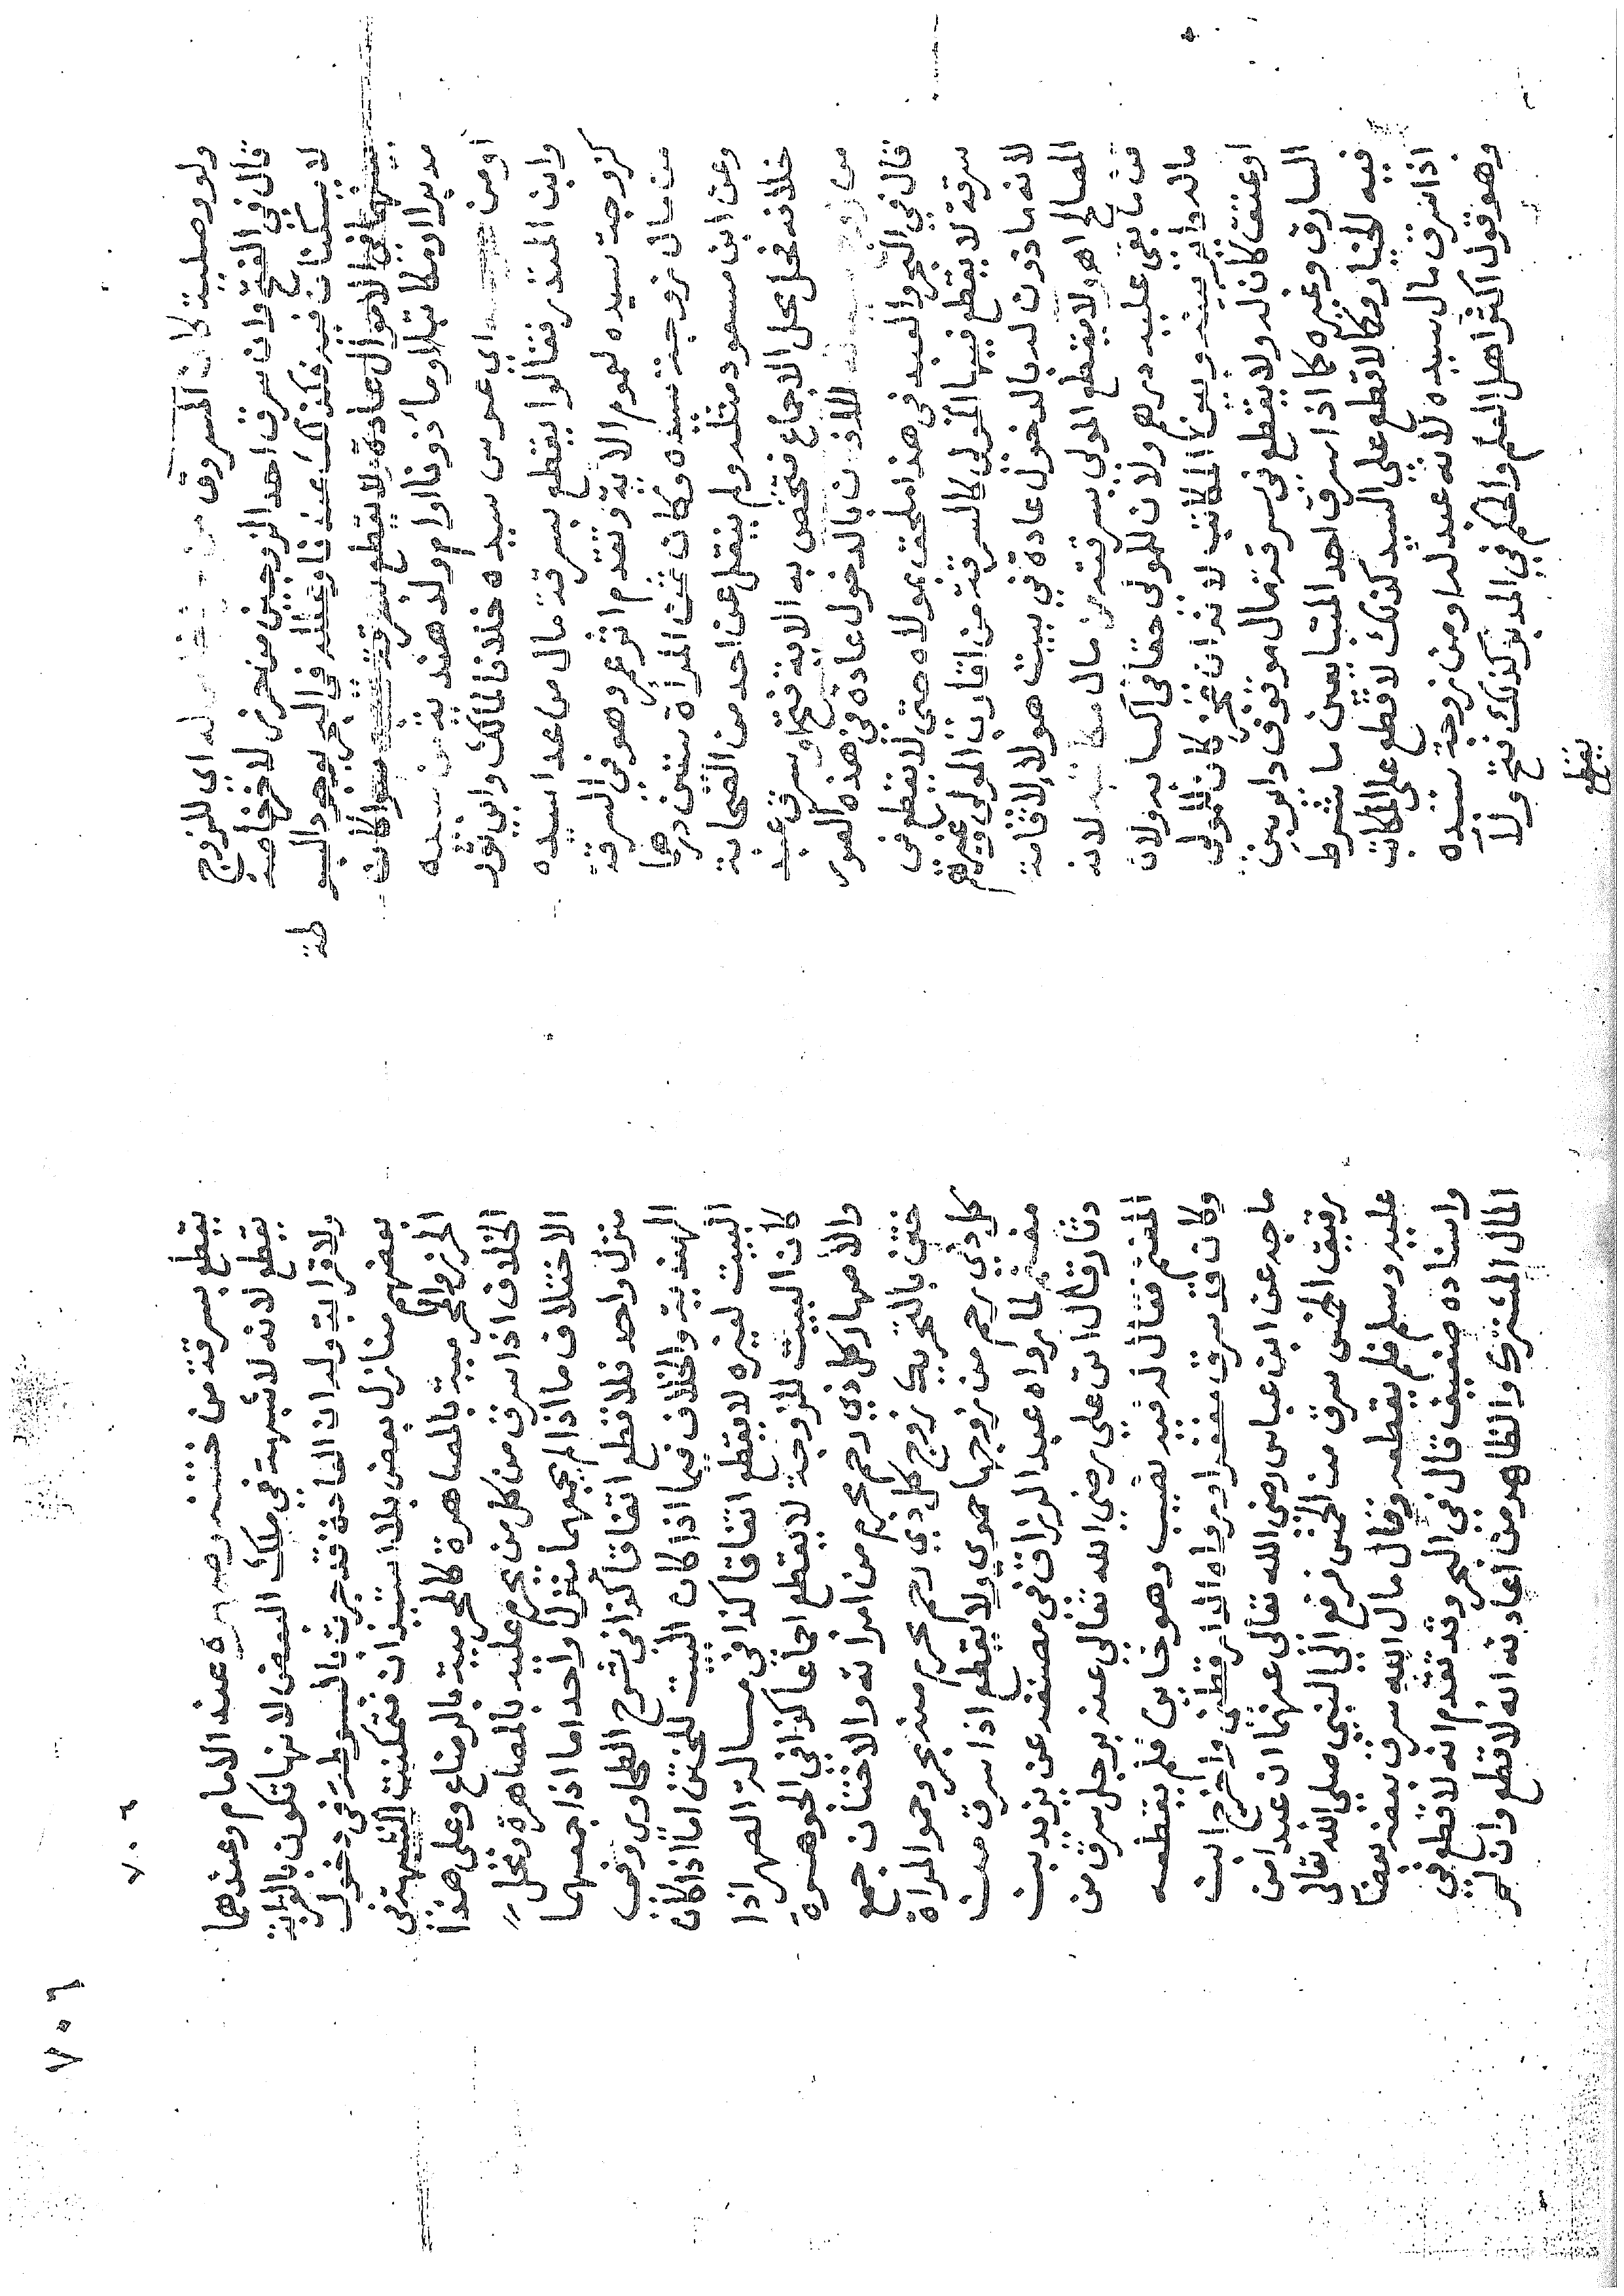 ولو وصلية كان المسروق من له اى للزوج
قال فى الفتح وان سرق احد الزوجين من حرز لاخر خاصة
لا يسكنان فيه فكذلك عندنا وعلله فى البحر بوجود البسو
طة
بينهما فى الاموال عادة ولا يقطع بسرقة سواكان
مدبرا او مكاتبا او ماذونا او ام ولد هندية من سيده
او من اى عرس سيده خلافا لمالك وابى ثور
وابن المنذر فقالوا يقطع بسرقة مال من عدا سيده
كزوجة سيده لعموم الاية وتقدم اثر عمر وهو فى السرقة
من مال زوجة سيده وكان ثمن المراة ستين درهما
وعن ابن مسعود مثله ولم ينقل عن احد من الصحابة
خلافه فحل محل الاجماع فتخص به الاية فتح او سرق عبد
من زوج للاذن بالدخول عادة فى هذه الصور
قال فى البحر والعبد فى هذا ملحق بمولاه حتى لا يقطع فى
سرقة لا يقطع فيها المولى كالسرقة من اقارب المولى وغيرهم
لانه ماذون له بالدخول عادة فى بيت هولا لاقامة
المصالح اهو ولا يقطع المولى بسرقته من مال مكاتبه لانه
قن ما بقى عليه درهم ولان للمولى حقا فى اكسابه ولان
ماله دائر بينه وبين المكاتب لانه ان عجز كان للمولى
او عتق كان له ولا يقطع فى سرقة مال موقوف دائر بين
السارق وغيره كما اذا سرق احد المتبايعين ما شرط
فيه الخيار وكما لا قطع على السيد كذلك لا قطع على المكاتب
اذا سرق مال سيده لانه عبد له او من زوجة سيده
وهو قول اكثر اهل العلم والحكم فى المدبر كذلك فتح ولا
يقطع
٧٠٦
٧٠٦
يقطع بسرقة من ختنه وصهره عند الامام وعندهما
يقطع لانه لا شبهة فى ملك البعض لانها تكون بالقرابة
ولا قرابة وله ان العادة قد جرت بالبسوطة فى دخول
بعضهم منازل بعض بلا استيذان فتمكنت الشبهة فى
الحرز والمحرمية بالمصاهرة كالمحرمية بالرضاع وعلى هذا
الخلاف اذا سرق من كل من يحرم عليه بالمصاهرة ومحل
الاختلاف ما اذا لم يجمعهما منزل واحد اما اذا جمعهما
منزل واحد فلا قطع اتفاقا كذا فى شرح الطحاوى وفى
الهندية والخلاف فيما اذا كان البيت للختن اما اذا كان
البيت لغيره لا يقطع اتفاقا كذا فى مسالة الصهر اذا
كان البيت للزوجة لا يقطع اجماعا كذا فى الجوهرة
والاصهار كل ذى رحم محرم من امراته والاختان جمع
ختن بالتحريك زوج كل ذى رحم محرم منه بحر وحمو المراة
كل ذى رحم من زوجها حموى ولا يقطع اذا سرق من
مغنم لما رواه عبد الرزاق فى مصنفه عن يزيد بن
دثار قال اتى على رضى الله تعالى عنه برجل سرق من
المغنم فقال له فيه نصيب وهو خاين فلم يقطعه
وكان قد سرق مغفرا ورواه الدارقطنى واخرج ابن
ماجه عن ابن عباس رضى الله تعالى عنهما ان عبدا من
رقيق الخمس سرق من الخمس فرفع الى النبى صلى الله تعالى
عليه وسلم فلم يقطعه وقال مال الله سرق بعضه بعضا
واسناده ضعيف قال فى البحر وقد تقدم انه لا قطع فى
المال المشترك والظاهر من اعادته انه لا قطع وان لم